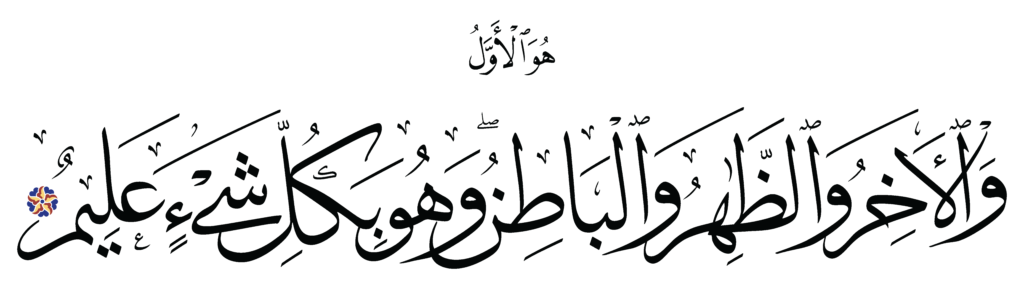 هُوَ ٱلْأَوَّلُ
وَٱلْأَخِرُ وَٱلظَّٰهِرُ وَٱلْبَاطِنُ ۖ وَهُوَ بِكُلِّ شَىْءٍ عَلِيمٌ